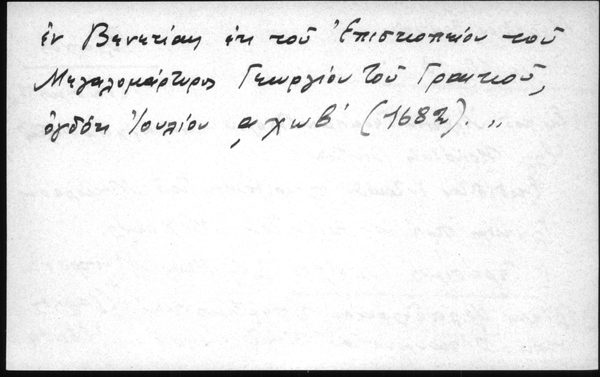 ἐν Βενετίαι ἐκ τοῦ Ἐπισκοπείου τοῦ
Μεγαλομάρτυρος Γεωργίου τοῦ Γραικοῦ,
ὀγδόῃ Ἰουλίου ͵αχωβ΄ (1682).„